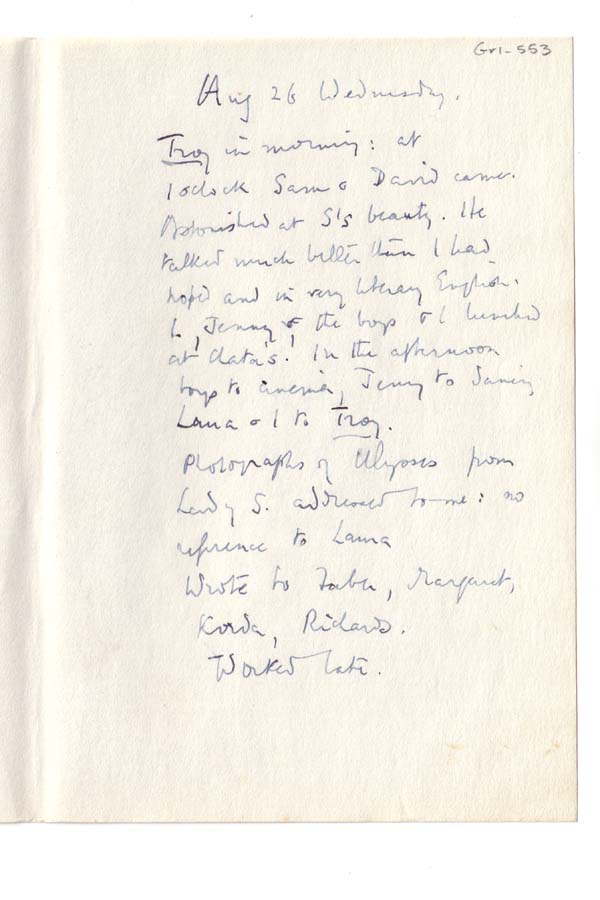 Gri-553
Aug 26 Wednesday.
Troy in morning: at
1 oclock Sam & David came.
Astonished at S's beauty. He
talked much better than I had
hoped and in very literary English.
L, Jenny & the boys & I lunched
at . In the afternoon
boys to cinema, Jenny to
Laura & I to Troy.
Photographs of Ulysses from
Lady S. addressed to me: no
reference to Laura
Wrote to Faber, Margaret,
Korda, Richards.
Worked late.